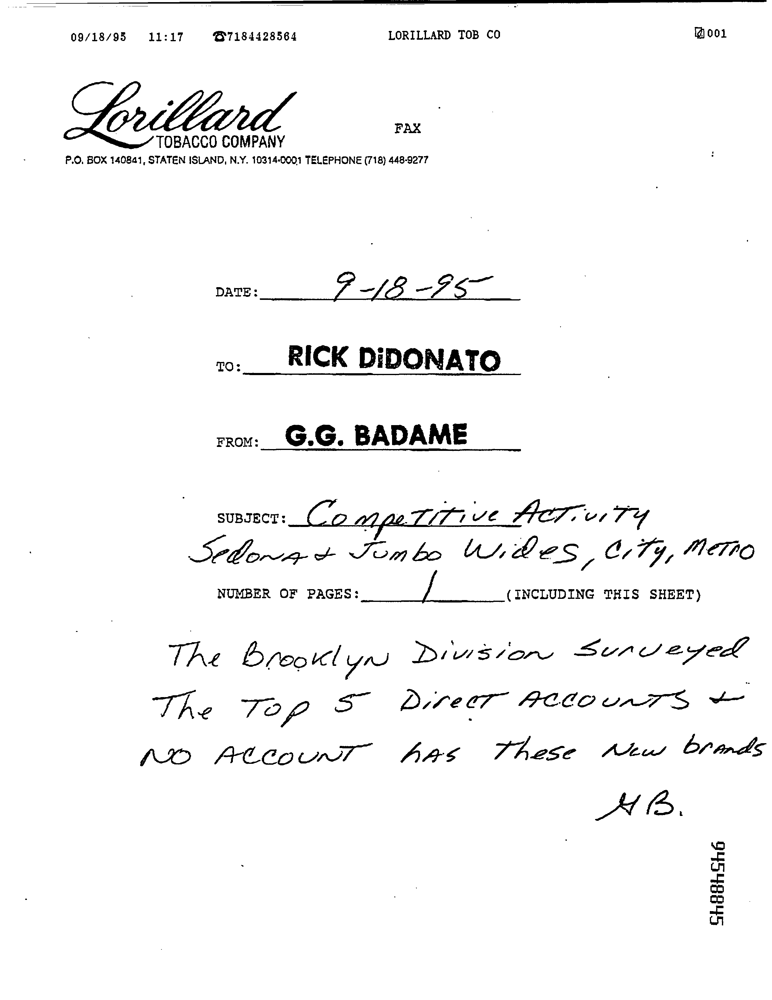 09/18/95 11:17 ☎7184428564 LORILLARD TOB CO 001
Lorillard
TOBACCO COMPANY
FAX
P.O. BOX 140841, STATEN ISLAND, N.Y. 10314-0001 TELEPHONE (718) 448-9277
DATE: 9-18-95
TO: RICK DiDONATO
FROM: G.G. BADAME
SUBJECT: Competitive Activity
Sedona + Jumbo Wides, City, Metro
NUMBER OF PAGES: 1 (INCLUDING THIS SHEET)
The Brooklyn Division Surveyed
The Top 5 Direct Accounts +
NO ACCOUNT has These New brands
GB.
94548845